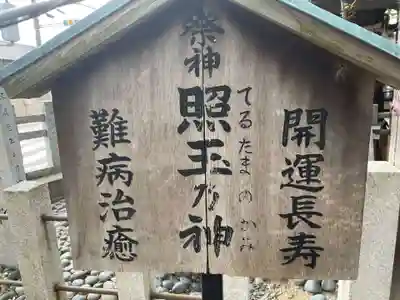 開運長寿
祭神
照玉乃神
てるたまのかみ
難病治癒